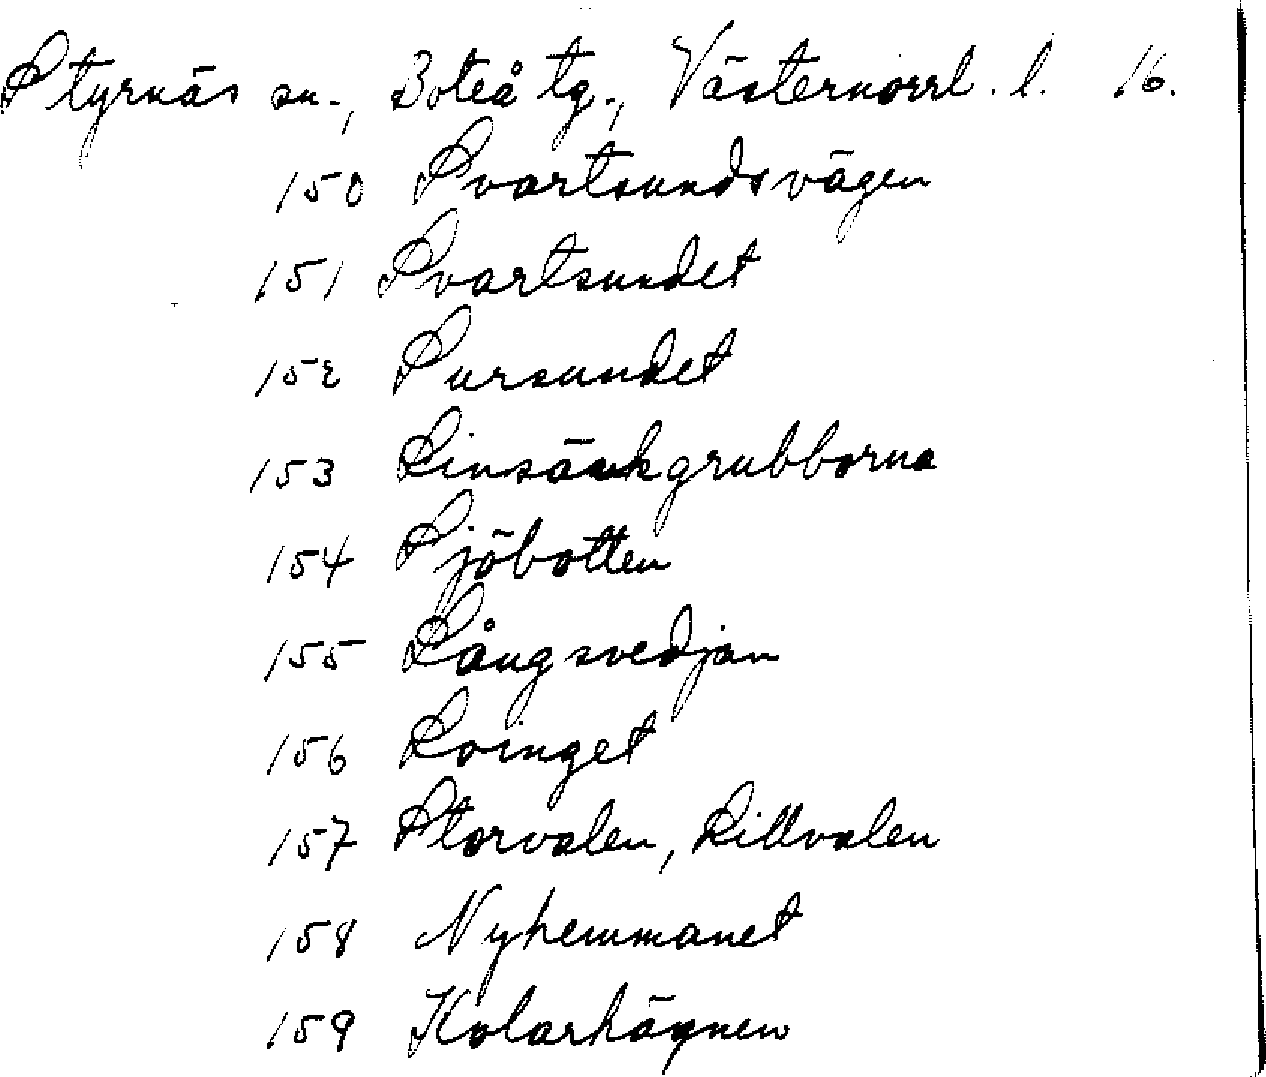 Styrnäs sn., Boteå tg., Västernorrl. l. 16.
150 Svartsundsvägen
151 Svartsundet
152 Sursundet
153 Linsänkgrubborna
154 Sjöbotten
155 Långsvedjan
156 Loinget
157 Storvalen, Lillvalen
158 Nyhemmanet
159 Kolarhägnen